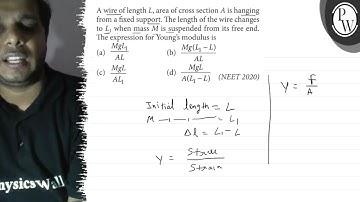 A wire of length L, area of cross section A is hanging
from a fixed support. The length of the wire changes
to L₁ when mass M is suspended from its free end.
The expression for Young's modulus is
(a) MgL₁/AL (b) Mg(L₁ – L)/AL
(c) MgL/AL₁ (d) MgL/A(L₁ – L) (NEET 2020)
Initial length = L
M —ı —ı —ı = L₁
Δl = L₁ – L
Y = Stress/Strain
Y = F/A
PW
hysicsWall